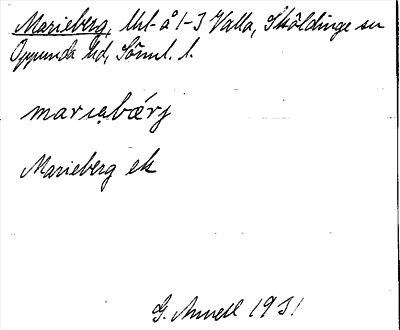 Marieberg, lht å 1-3 Valla, Sköldinge sn
Oppunda hd, Söml. l.
mariabǽrj
Marieberg ek
G. Anvell 1931